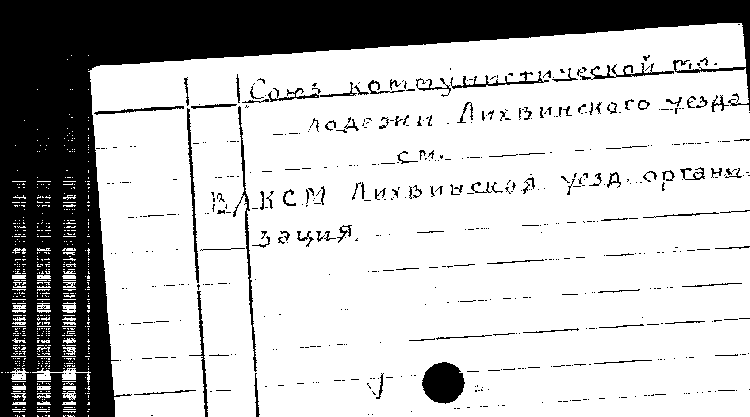 Союз коммунистической мо-
лодежи Лихвинского уезда
см.
ВЛКСМ Лихвинская уезд. органи-
зация.